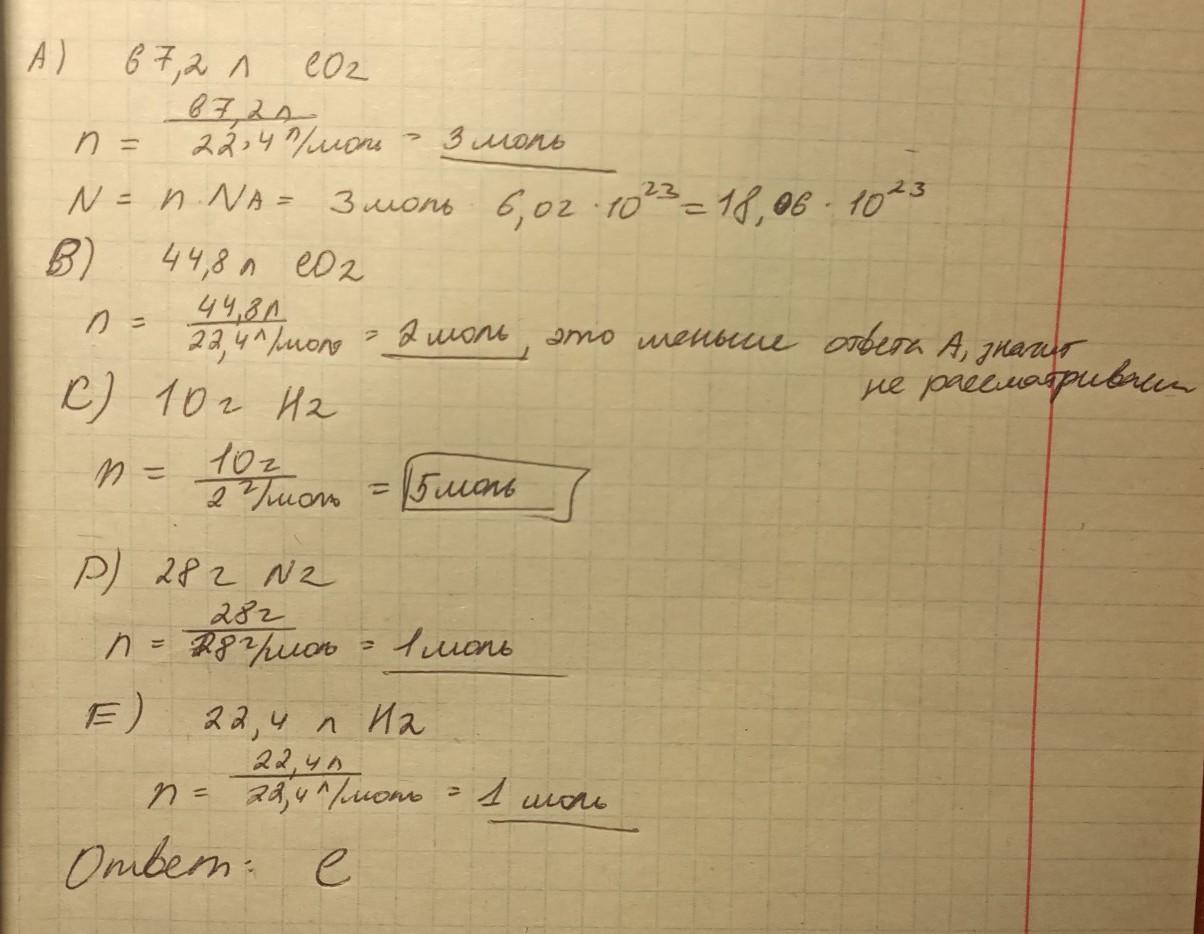 А) 67,2 л CO2
n = 67,2 л / 22,4 л/моль = 3 моль
N = n · NA = 3 моль · 6,02 · 10^23 = 18,06 · 10^23
B) 44,8 л CO2
n = 44,8 л / 22,4 л/моль = 2 моль, это меньше ответа А, значит
не рассматриваем
C) 10 г H2
n = 10 г / 2 г/моль = 5 моль
D) 28 г N2
n = 28 г / 28 г/моль = 1 моль
E) 22,4 л H2
n = 22,4 л / 22,4 л/моль = 1 моль
Ответ: C